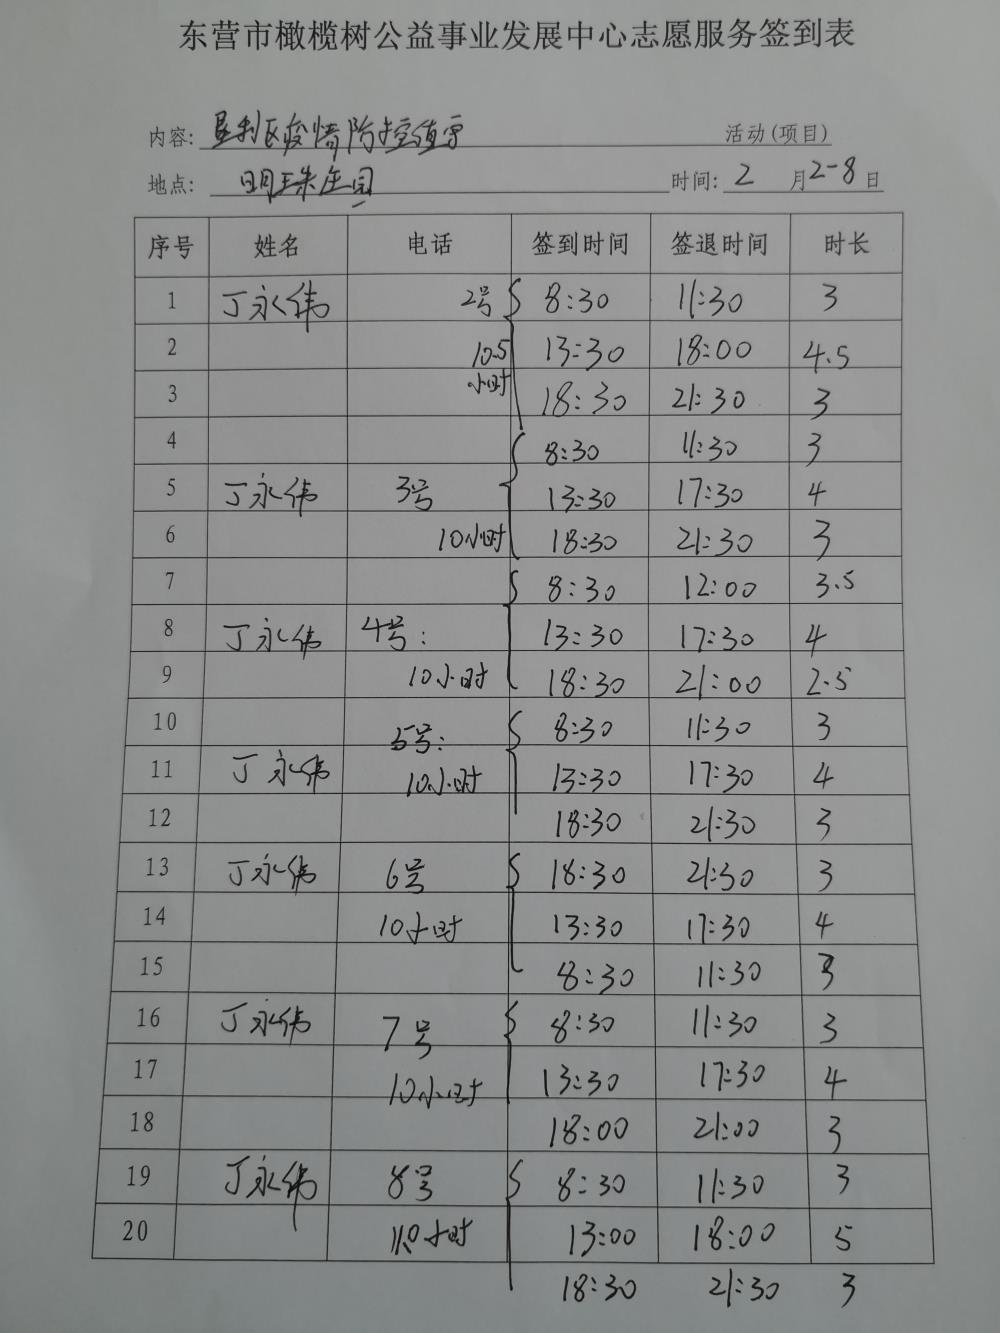 东营市橄榄树公益事业发展中心志愿服务签到表
内容: 垦利区疫情防控值守 活动(项目)
地点: 明珠庄园 时间: 2 月 2-8 日
序号 姓名 电话 签到时间 签退时间 时长
1 丁永伟 2号 8:30 11:30 3
2 10.5 13:30 18:00 4.5
3 小时 18:30 21:30 3
4 8:30 11:30 3
5 丁永伟 3号 13:30 17:30 4
6 10小时 18:30 21:30 3
7 8:30 12:00 3.5
8 丁永伟 4号: 13:30 17:30 4
9 10小时 18:30 21:00 2.5
10 5号: 8:30 11:30 3
11 丁永伟 10小时 13:30 17:30 4
12 18:30 21:30 3
13 丁永伟 6号 18:30 21:30 3
14 10小时 13:30 17:30 4
15 8:30 11:30 3
16 丁永伟 7号 8:30 11:30 3
17 10小时 13:30 17:30 4
18 18:00 21:00 3
19 丁永伟 8号 8:30 11:30 3
20 小时 13:00 18:00 5
18:30 21:30 3